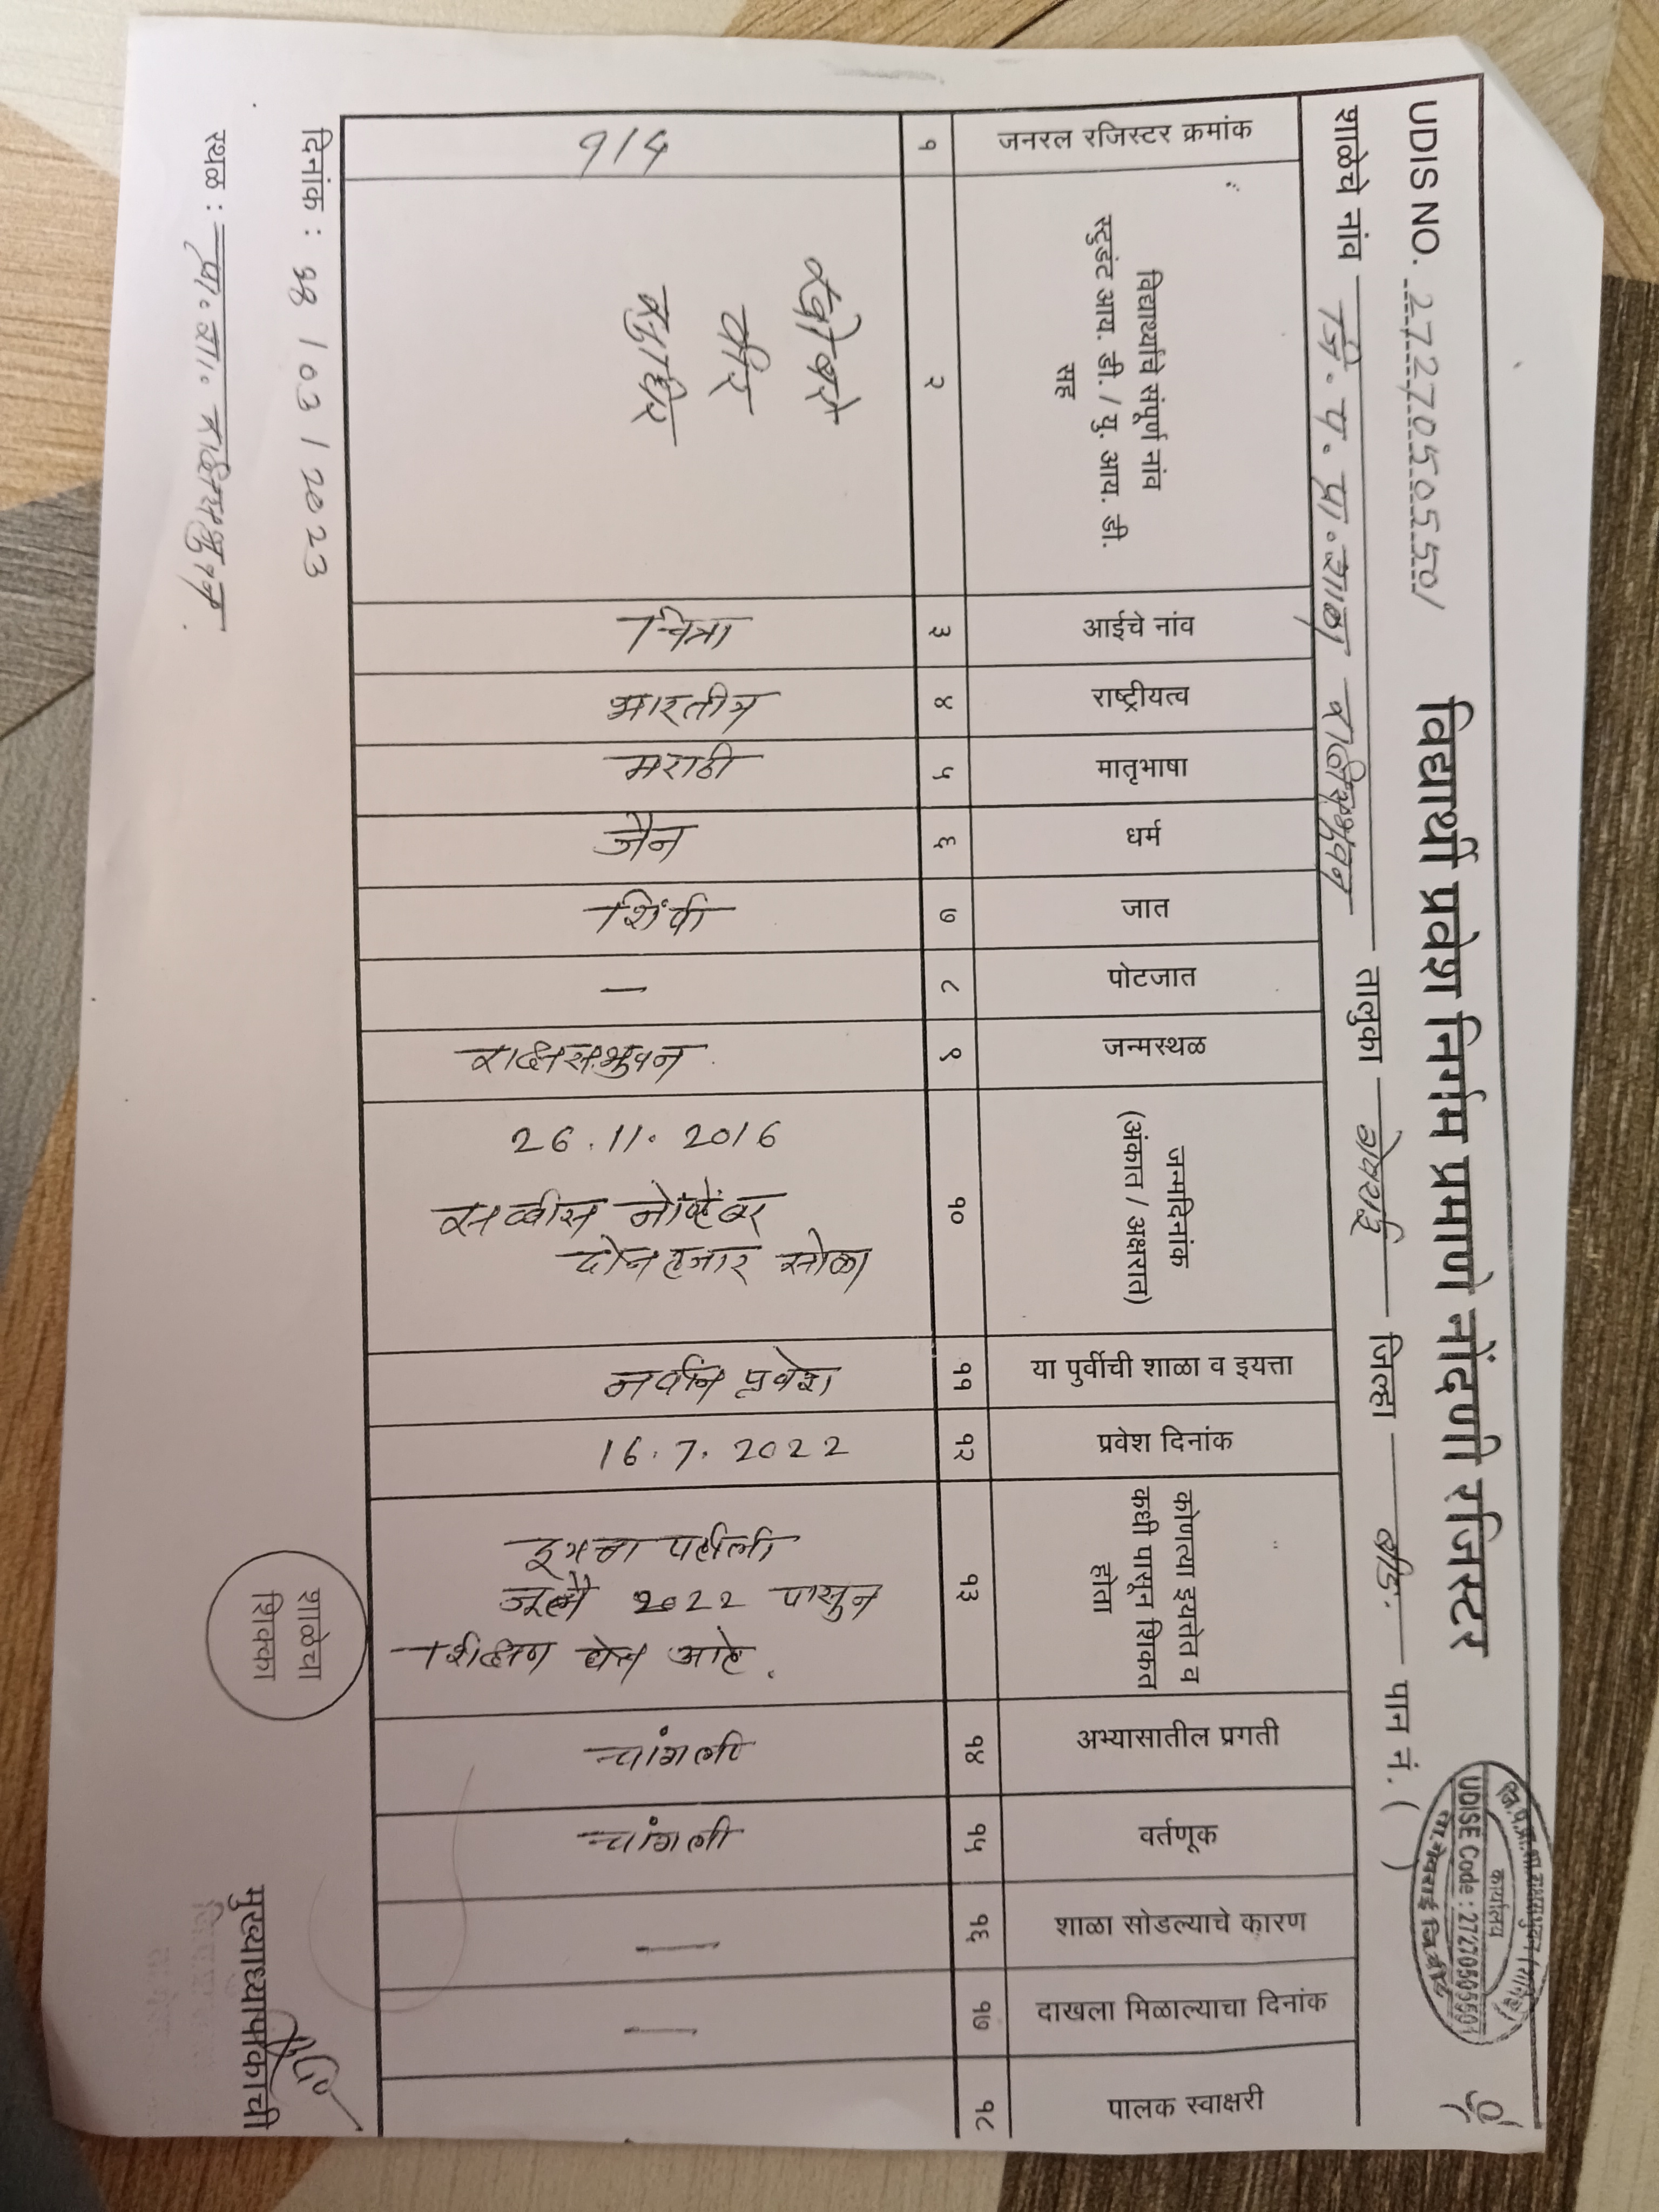 UDIS NO. 27270505501 विद्यार्थी प्रवेश निर्गम प्रमाणे नोंदणी रजिस्टर
जि.प.प्रा.शा.राक्षसभुवन
कार्यालय
UDISE Code : 27270505501
ता.गेवराई जि.बीड
शाळेचे नांव जि. प. प्रा. शाळा राक्षसभुवन तालुका गेवराई जिल्हा बीड. पान नं. ( )
जनरल रजिस्टर क्रमांक
विद्यार्थ्याचे संपूर्ण नांव
स्टुडंट आय. डी. / यु. आय. डी.
सह
आईचे नांव
राष्ट्रीयत्व
मातृभाषा
धर्म
जात
पोटजात
जन्मस्थळ
जन्मदिनांक
(अंकात / अक्षरात)
या पुर्वीची शाळा व इयत्ता
प्रवेश दिनांक
कोणत्या इयत्तेत व
कधी पासून शिकत
होता
अभ्यासातील प्रगती
वर्तणूक
शाळा सोडल्याचे कारण
दाखला मिळाल्याचा दिनांक
पालक स्वाक्षरी
१ २ ३ ४ ५ ६ ७ ८ ९ १० ११ १२ १३ १४ १५ १६ १७ १८
वीर
चित्रा
भारतीय
मराठी
जैन
शिंपी
—
राक्षसभुवन
26.11.2016
सव्वीस नोव्हेंबर
दोन हजार सोळा
नवीन प्रवेश
16.7.2022
इयत्ता पहीली
जूलै 2022 पासुन
शिक्षण घेत आहे.
चांगली
चांगली
—
—
दिनांक : /03/2023
स्थळ : प्रा. शा. राक्षसभुवन.
शाळेचा
शिक्का
मुख्याध्यापकाची